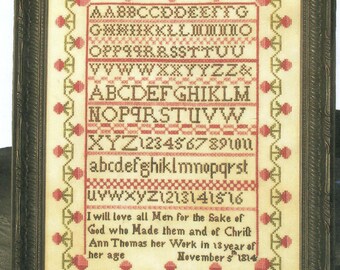 AABBCCDDEEFFG
GHHIIKKLLMMNNO
OPPQQRRSSTTUU
VVWWXXYYZZ&
ABCDEFGHIKLM
NOPQRSTUVW
XYZ1234567891011
abcdefghiklmnopqrst
uvwxyz1213141516
I will love all Men for the Sake of
God who Made them and of Christ
Ann Thomas her Work in 13 year of
her age November 5th 1814